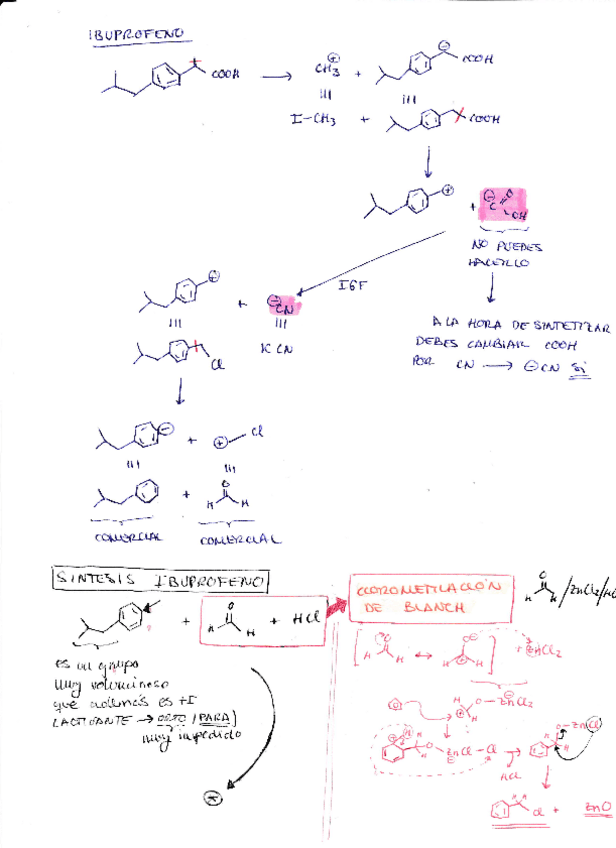 IBUPROFENO
COOH → CH3 ⊕ + ⊖ COOH
I-CH3 + COOH
⊕ + ⊖ C O OH
NO PUEDES
HACERLO
IGF
⊕ + ⊖ CN
Cl K CN
A LA HORA DE SINTETIZAR
DEBES CAMBIAR COOH
POR CN → ⊖ CN SI
⊖ + ⊕ Cl
+ O H H
COMERCIAL COMERCIAL
SINTESIS IBUPROFENO
+ O H H + HCl
es un grupo
muy voluminoso
que además es +I
→ ORTO / PARA
muy impedido
CLOROMETILACIÓN
DE BLANCH
O H H /ZnCl2/HCl
[ O H H ↔ O ⊖ H ⊕ H ] + ZnCl2
H ⊕ H O ⊖ ZnCl2
H H O ZnCl Cl → HCl
H H O ZnCl
H H Cl + ZnO